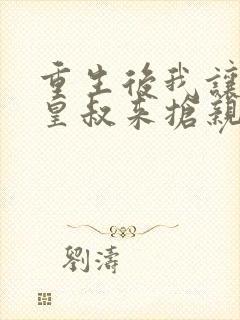 重生後我讓
皇叔來搶親
劉濤